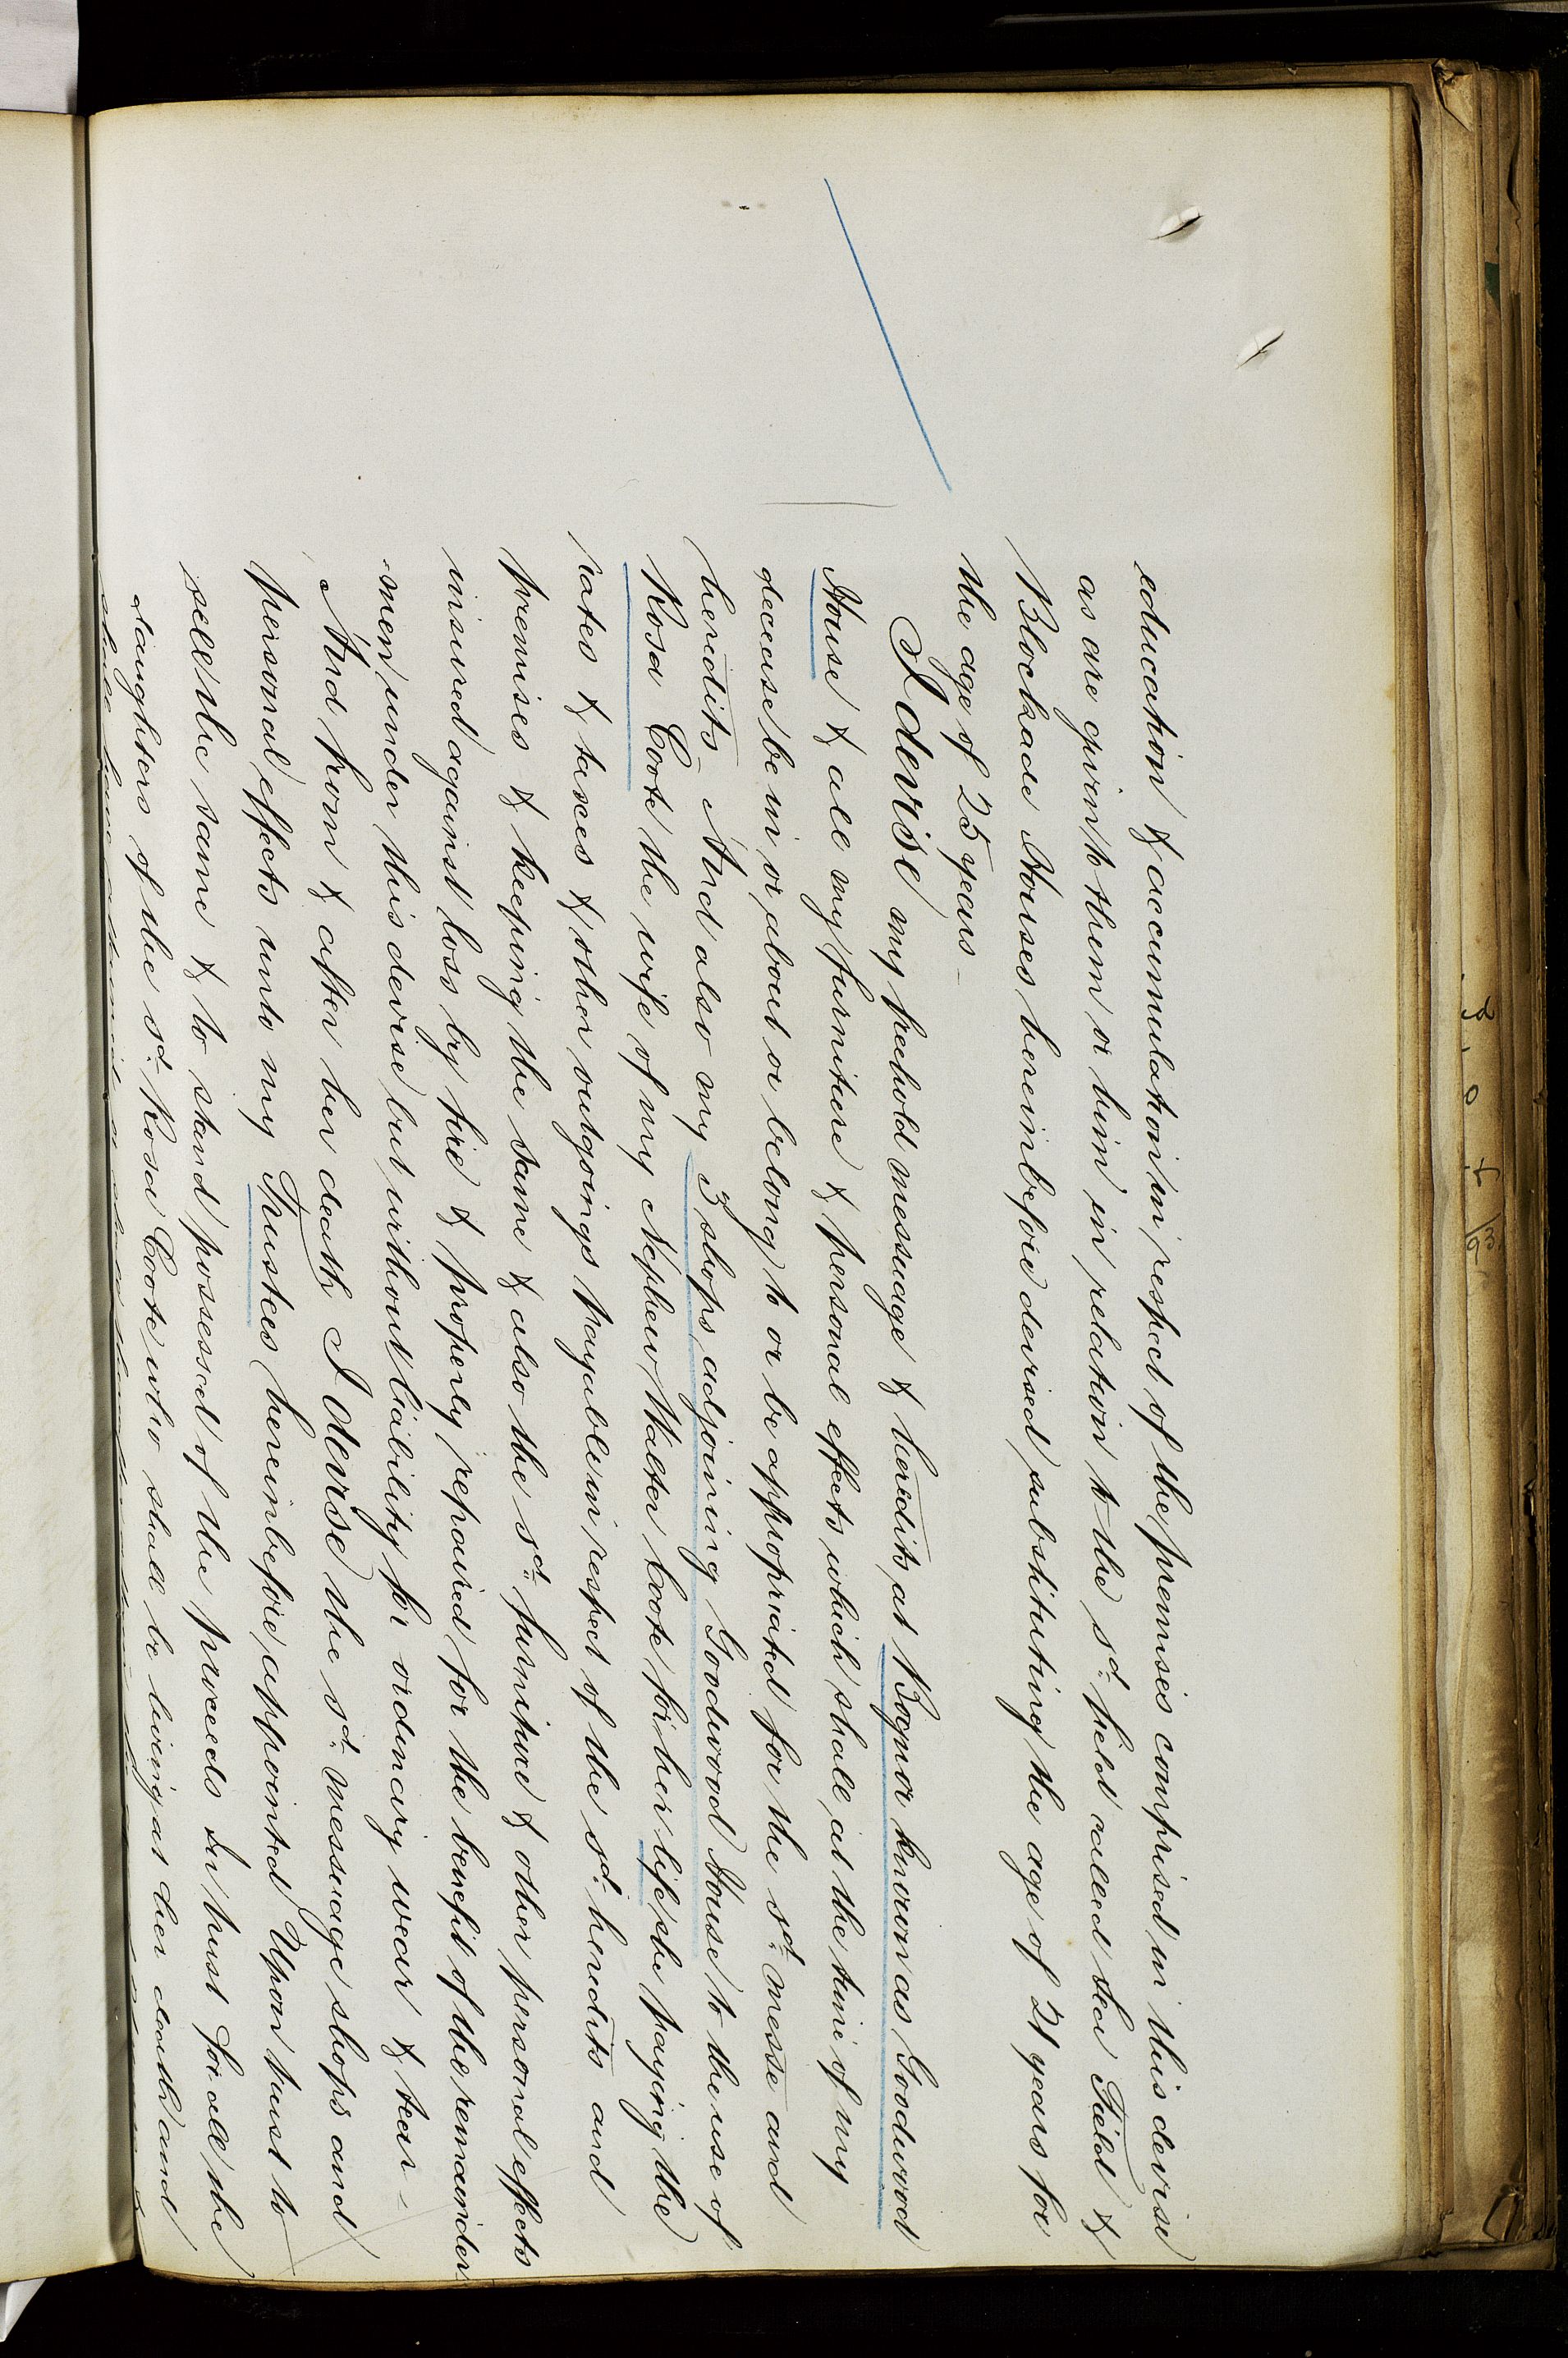 education & accumulation in respect of the premises comprised in this devise
as are given to them or him in relation to the sd. field called Sea Field &
Blockade Houses hereinbefore devised substituting the age of 21 years for
the age of 25 years -
I devise my freehold messuage & heredits at Bognor known as Goodwood
House & all my furniture & personal effects which shall at the time of my
decease be in or about or belong to or be appropriated for the sd. messe and
heredits - And also my 3 shops adjoining Goodwood House to the use of
Rosa Coote the wife of my Nephew Walter Coote for her life she paying the
rates & taxes & other outgoings payable in respect of the sd. heredits and
premises & keeping the same & also the sd. furniture & other personal effects
insured against loss by fire & properly repaired for the benefit of the remainder
-men under this devise but without liability for ordinary wear & tear -
And from & after her death I devise the sd. messuage shops and
personal effects unto my Trustees hereinbefore appointed Upon trust to
sell the same & to stand possessed of the proceeds In trust for all the
daughters of the sd. Rosa Coote who shall be living at her death and